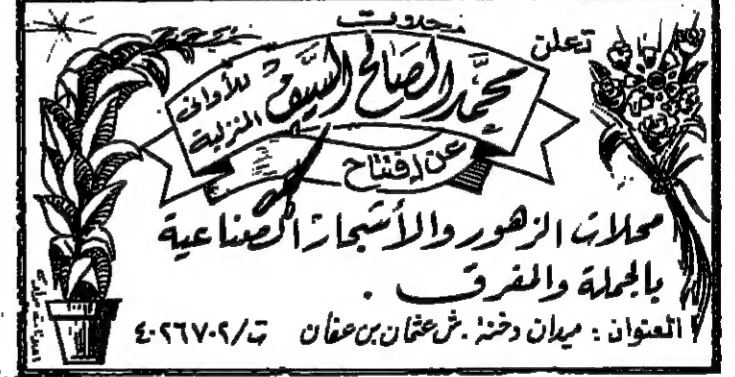 تعلن
محلات
محمد الصالح السيف للأواني المنزلية
عن افتتاح
محلات الزهور والأشجار الصناعية
بالجملة والمفرق .
العنوان : ميدان دخنة . ش عثمان بن عفان ت/٤٠٢٦٧٠٢